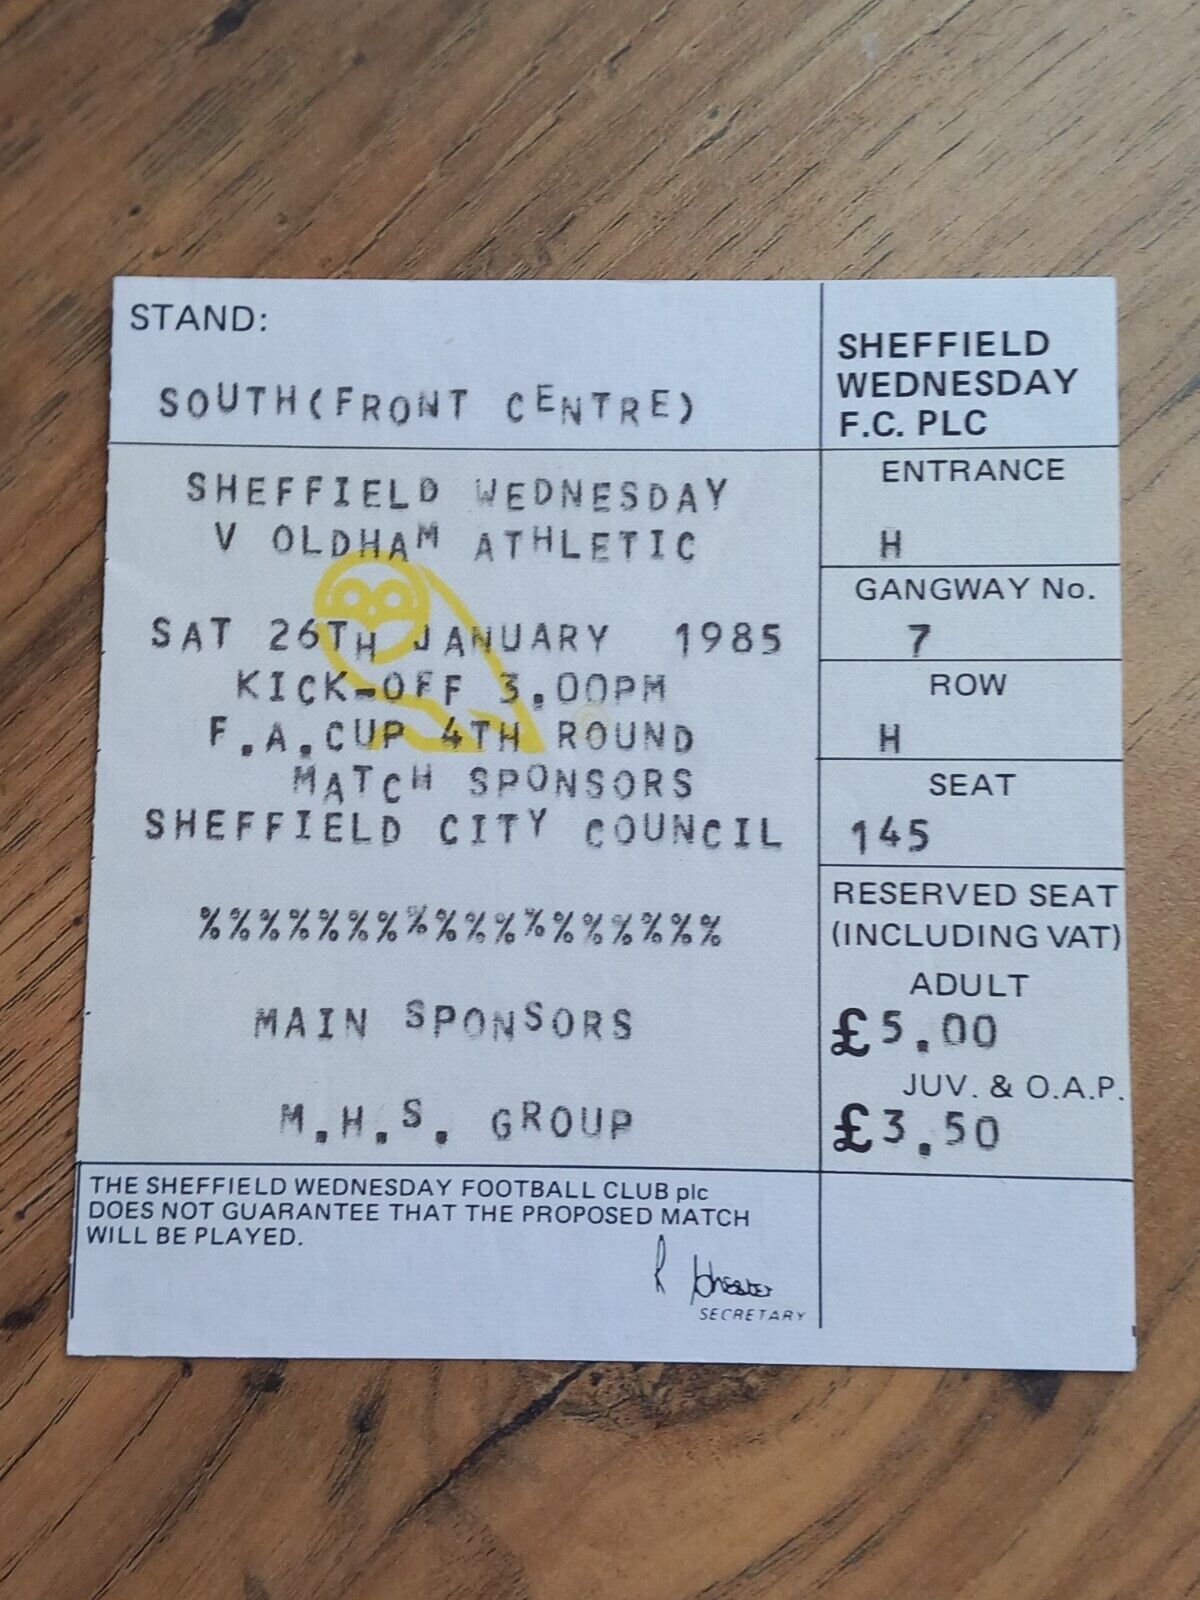 STAND:
SOUTH(FRONT CENTRE)
SHEFFIELD WEDNESDAY
V OLDHAM ATHLETIC
SAT 26TH JANUARY 1985
KICK-OFF 3.00PM
F.A.CUP 4TH ROUND
MATCH SPONSORS
SHEFFIELD CITY COUNCIL
%%%%%%%%%%%%%%%%%%
MAIN SPONSORS
M.H.S. GROUP
THE SHEFFIELD WEDNESDAY FOOTBALL CLUB plc
DOES NOT GUARANTEE THAT THE PROPOSED MATCH
WILL BE PLAYED.
SECRETARY
SHEFFIELD
WEDNESDAY
F.C. PLC
ENTRANCE
H
GANGWAY No.
7
ROW
H
SEAT
145
RESERVED SEAT
(INCLUDING VAT)
ADULT
£5.00
JUV. & O.A.P.
£3.50